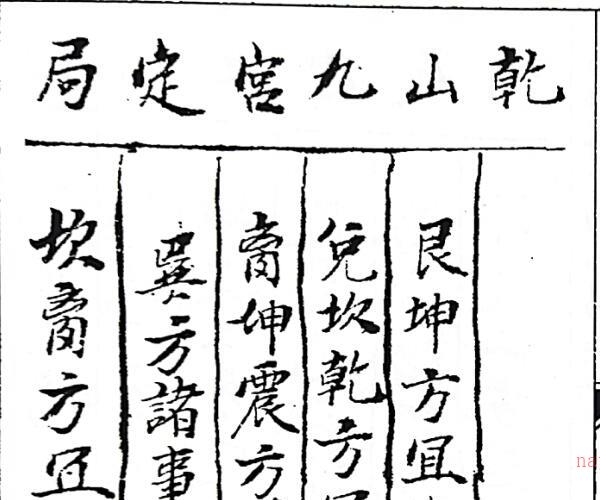 乾山九宮定局
艮坤方宜
兌坎乾方
坤震方
巽方諸事
坎方宜